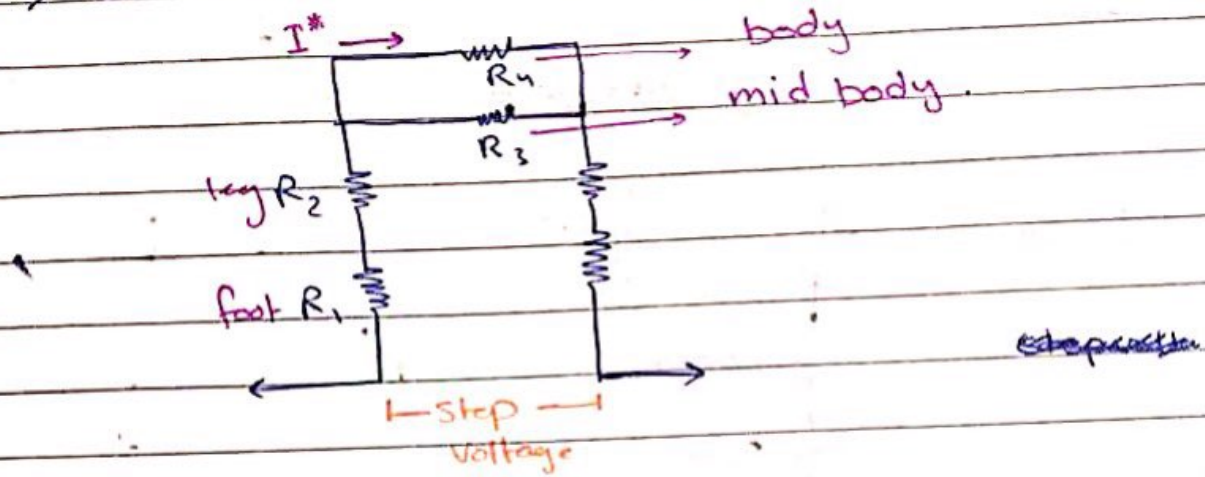 I* body
R4
mid body.
R3
leg R2
foot R1
Step
Voltage